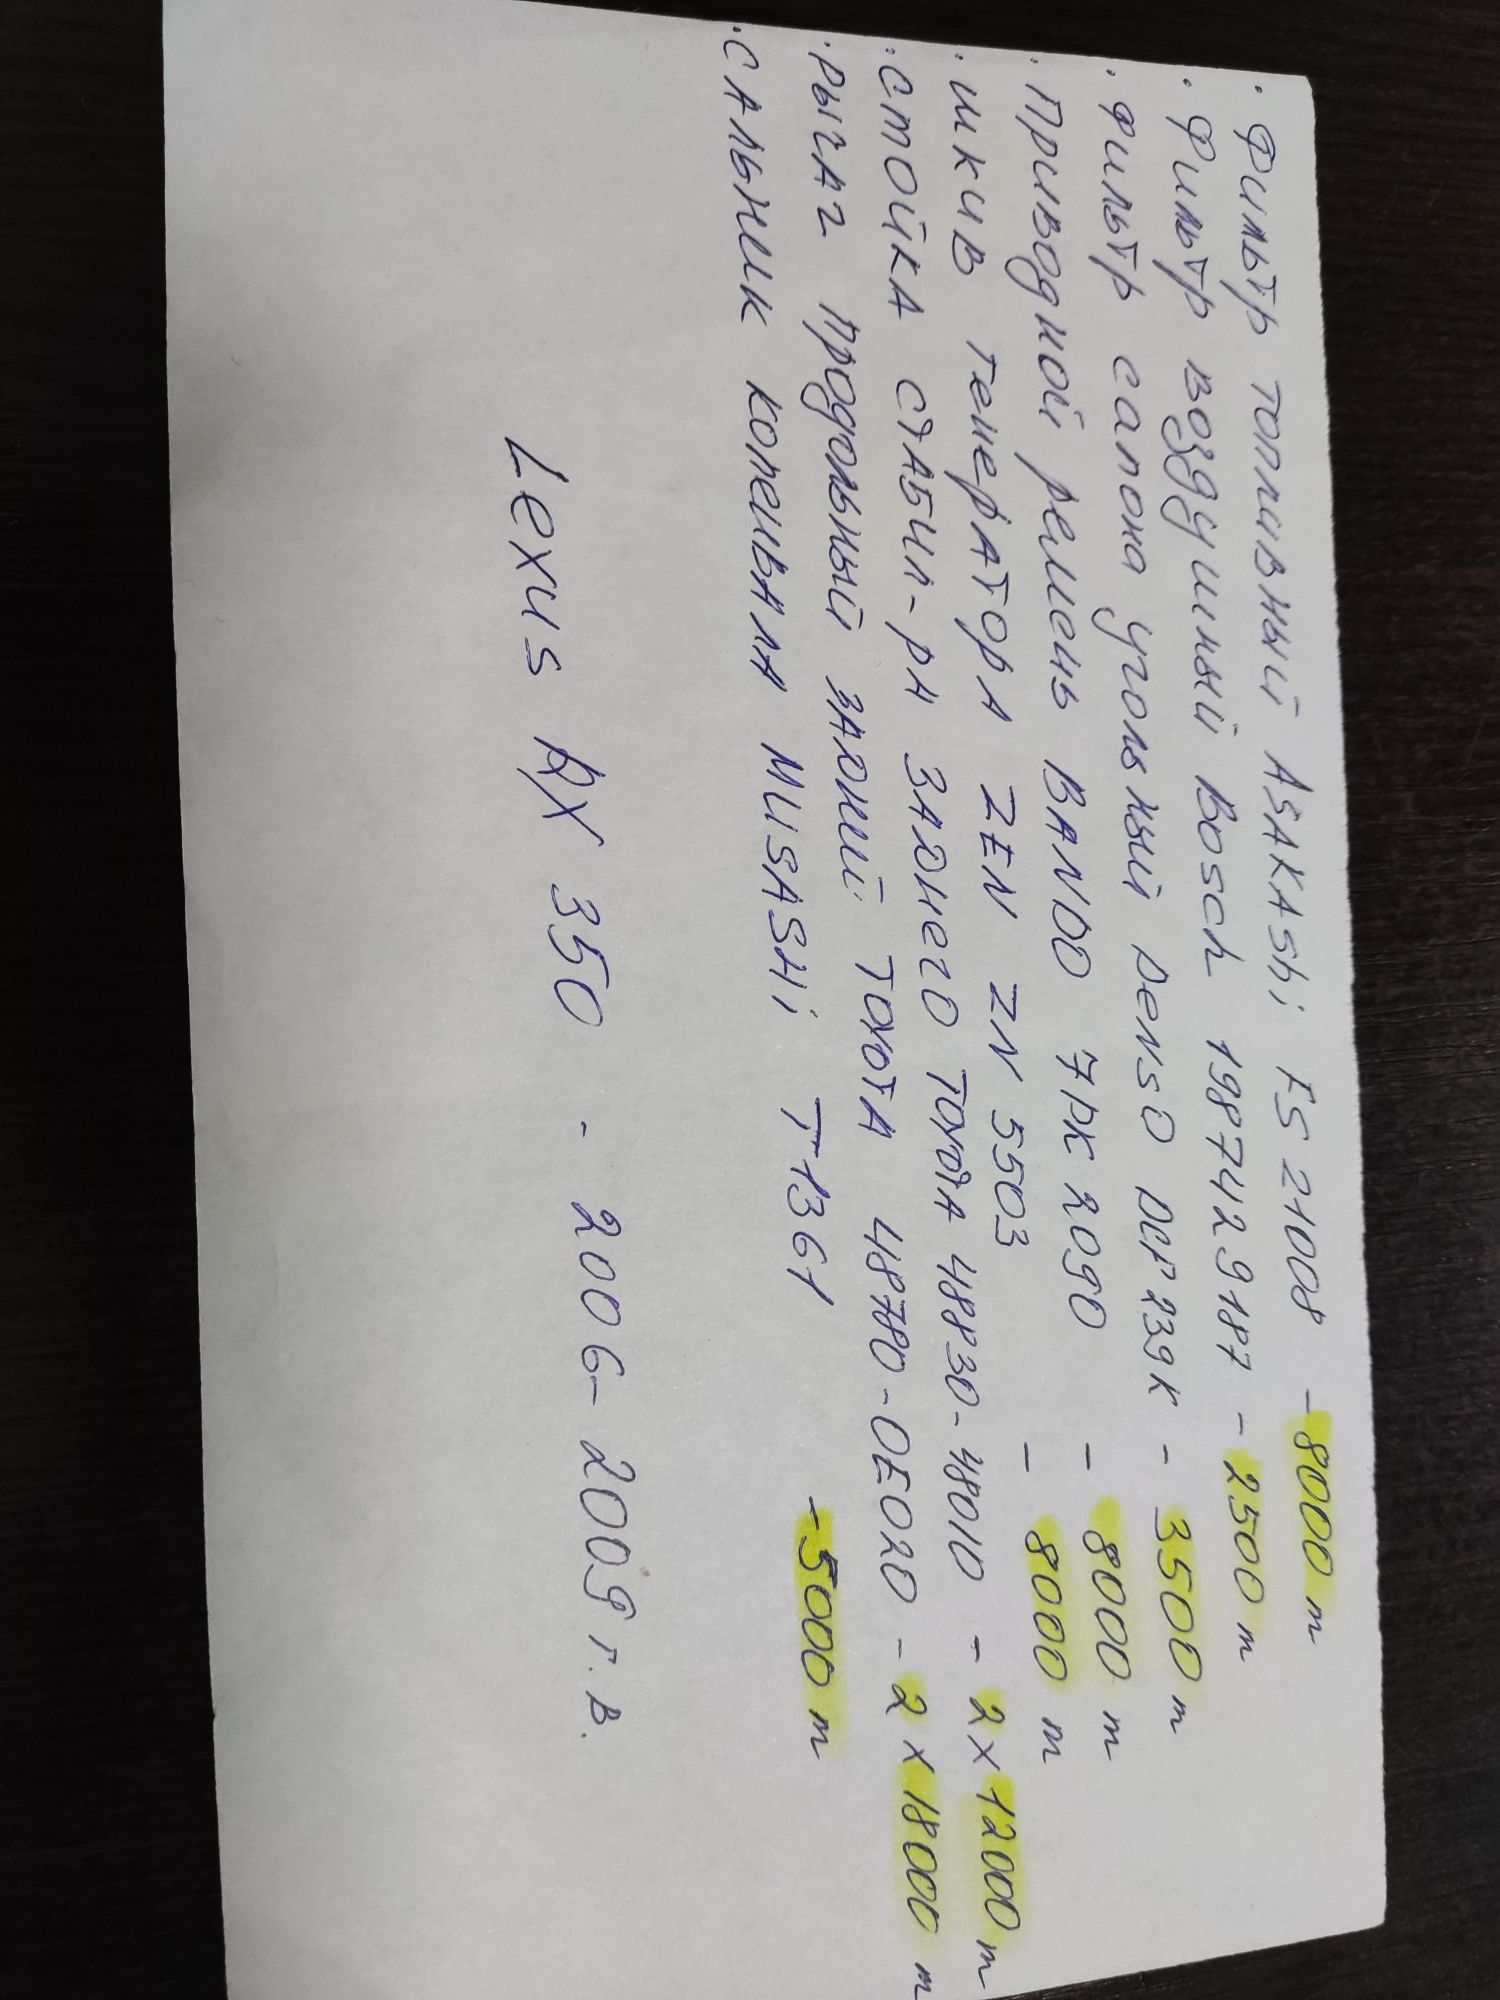 · Фильтр топливный ASAKAShi FS21008 - 8000 т
· Фильтр воздушный Bosch 1987429187 - 2500 т
· Фильтр салона угольный DENSO DCF239K - 3500 т
· Приводной ремень BANDO 7PK2090 - 8000 т
· Шкив генератора ZEN ZN5503 - 8000 т
· Стойка стабил-ра заднего TOYOTA 48830-48010 - 2x12000 т
· Рычаг продольный задний TOYOTA 48780-0E020 - 2x18000 т
· Сальник коленвала MUSASHi T1361 - 5000 т
Lexus RX 350 - 2006-2009 г.в.